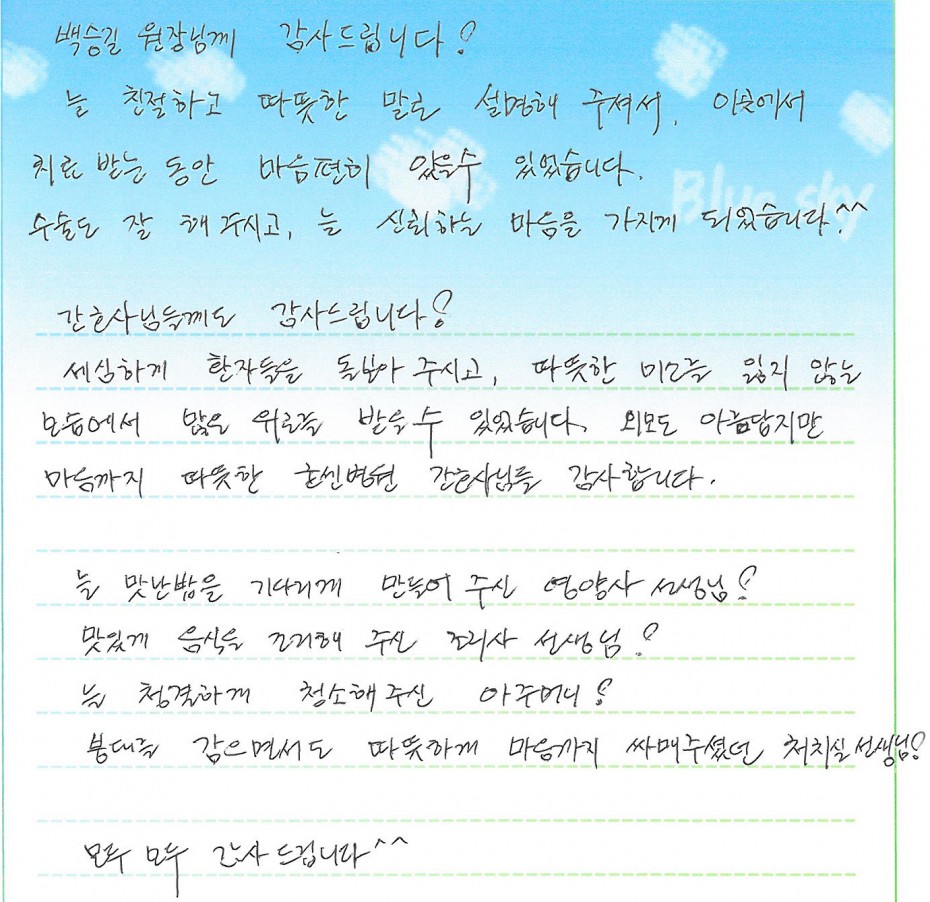 백승길 원장님께 감사드립니다!
늘 친절하고 따뜻한 말로 설명해 주셔서, 이곳에서
치료 받는 동안 마음편히 있을수 있었습니다.
Blue sky
수술도 잘 해 주시고, 늘 신뢰하는 마음을 가지게 되었습니다^^
간호사님들께도 감사드립니다!
세심하게 환자들을 돌보아 주시고, 따뜻한 미소를 잃지 않는
모습에서 많은 위로를 받을 수 있었습니다. 외모도 아름답지만
마음까지 따뜻한 병원 간호사님들 감사합니다.
늘 맛난밥을 기다리게 만들어 주신 영양사 선생님!
맛있게 음식을 조리해 주신 조리사 선생님!
늘 청결하게 청소해주신 아주머니!
붕대를 감으면서도 따뜻하게 마음까지 싸매주셨던 처치실 선생님!
모두 모두 감사 드립니다^^